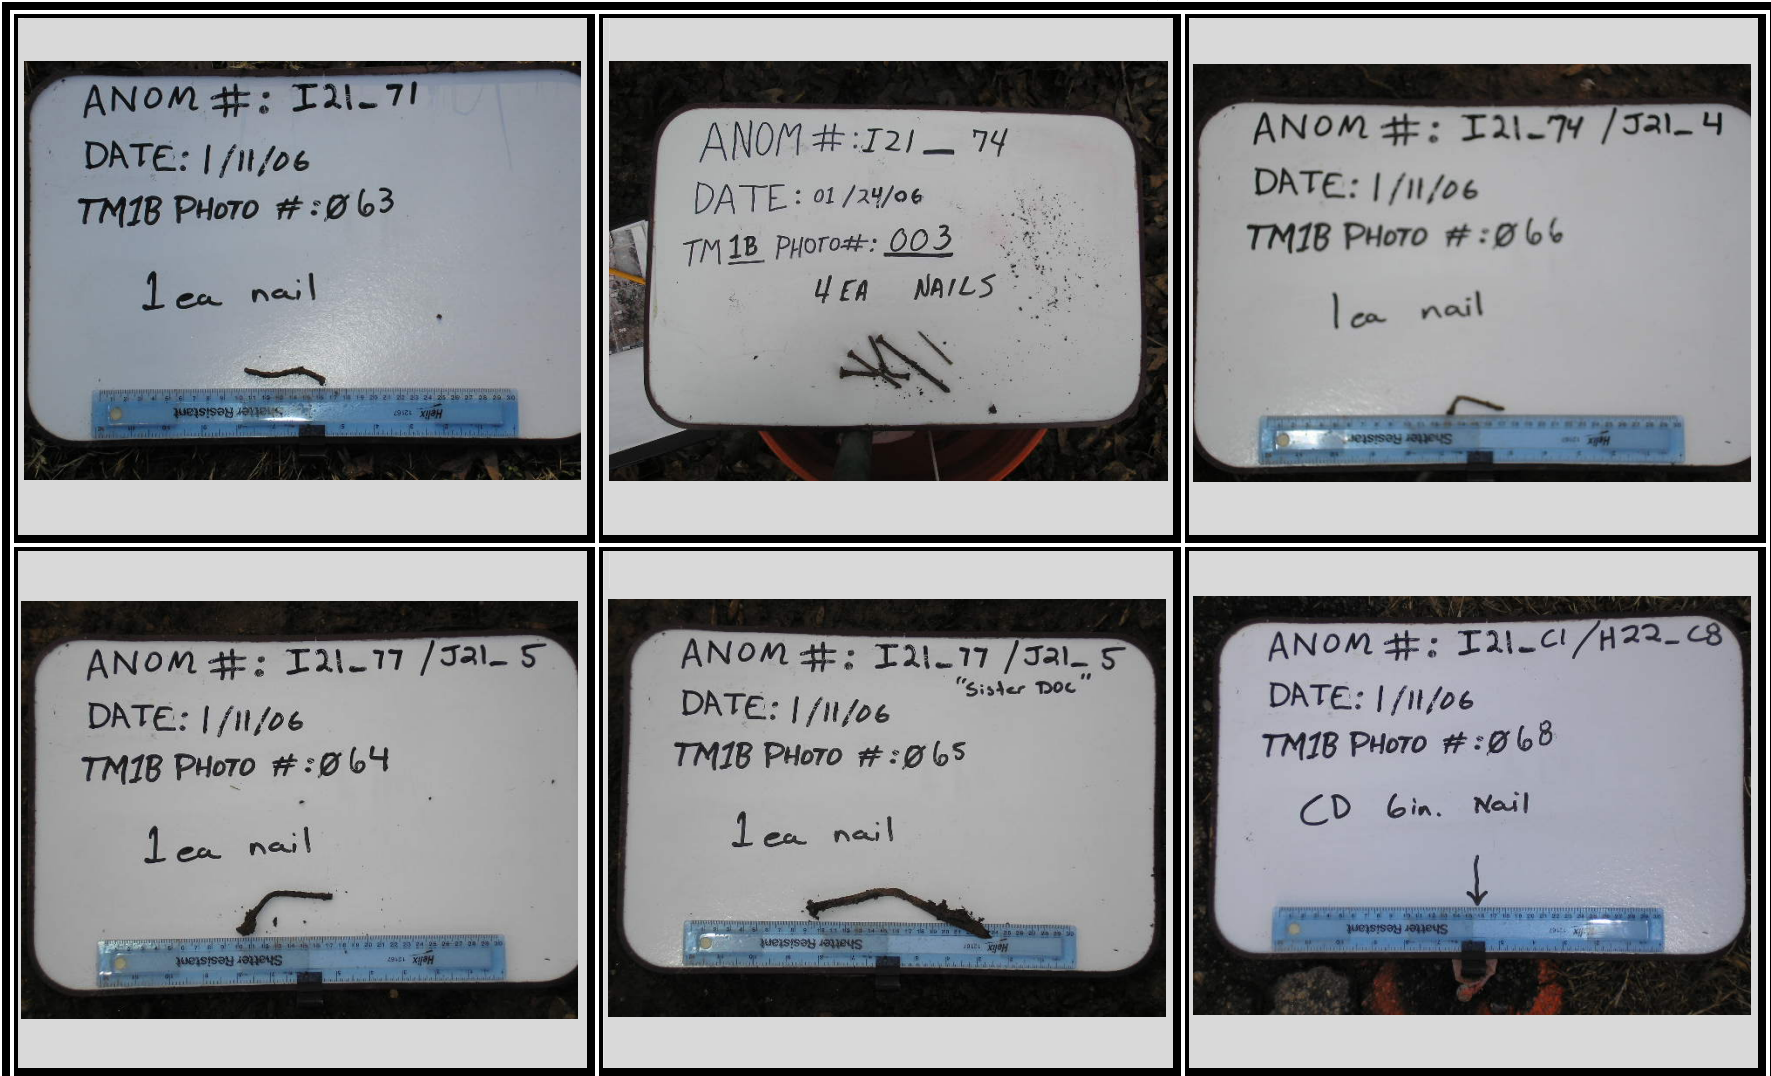 ANOM #: I21_71
DATE: 1/11/06
TM1B PHOTO #: Ø63
1 ea nail
Shatter Resistant
Helix
12167
ANOM #: I21_ 74
DATE: 01/24/06
TM 1B PHOTO#: 003
4 EA NAILS
ANOM #: I21_74 / J21_4
DATE: 1/11/06
TM1B PHOTO #: Ø66
1 ea nail
Shatter Resistant
Helix
12167
ANOM #: I21_77 / J21_5
DATE: 1/11/06
TM1B PHOTO #: Ø64
1 ea nail
Shatter Resistant
Helix
12167
ANOM #: I21_77 / J21_5
"Sister DOC"
DATE: 1/11/06
TM1B PHOTO #: Ø65
1 ea nail
Shatter Resistant
Helix
12167
ANOM #: I21_C1 / H22_C8
DATE: 1/11/06
TM1B PHOTO #: Ø68
CD 6in. Nail
Shatter Resistant
Helix
12167